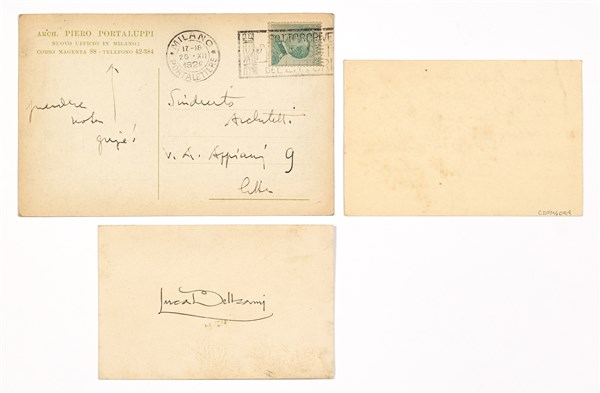 ARCH. PIERO PORTALUPPI
NUOVO UFFICIO IN MILANO:
CORSO MAGENTA - TELEFONO
MILANO
17-18
XII
SOTTOSCRIVE
DEL LITTORI
prendere
nota
grazie!
Sindacato
Architetti
V. A. Appiani 9
Città
Luca Beltrami